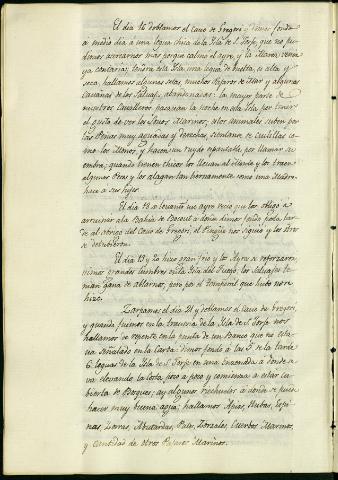 El dia 16 doblamos el Cavo de Gregori y dimos fondo
à medio dia à una legua chica de la Isla de S. Jorje, que no pu-
dimos acercarnos mas porque calmò el ayre, y la Marea venia
ya contraria; tendrà la Isla una legua de buelta, es alta y
seca, hallamos algunas Matas, muchos Pajaros de Mar y algunas
cavañas de los Salvajes, abandonadas: la mayor parte de
nuestros Cavalleros pasaron la noche en esta Isla por tener
el gusto de ver los Lovos Marinos, estos animales suben por
las Peñas muy aguadas y derechas, sientanse de Culillas co-
mo los Monos, y hacen un ruydo espantoso por llamar su
embra; quando tienen chicos los llevan al Marido y los traen
algunas Otras y los alagan tan tiernamente como una Madre
hace à sus hijos.
El dia 18 à levante un ayre recio que los obligò à
arruinar à la Bahia de Boucut à donde dimos fondo por la tar-
de al abrigo del Cavo de Gregori, el Pingüe nos siguiò y los Aires
se desabrieron.
El dia 19 y 20 hizo gran frio y los Ayres se reforzaron,
vimos grandes lumbres en la Isla del Fuego, los Salvajes te-
nian gana de hablarnos, pero por el temporal que hubo no se
hizo.
Zarpamos el dia 21 y doblamos el Cavo de Gregori,
y quando fuimos en la travesia de la Isla de S. Jorje nos
hallamos de repente en la punta de un Banco que no esta-
va señalado en la Carta: dimos fondo à las 5 de la tarde
6 leguas de la Isla de S. Jorje en una Ensenada à donde se
va elevando la Costa poco à poco y comienza à estar cu-
bierta de Bosques; ay algunos Riachuelos à donde se puede
hacer muy buena agua; hallamos Apios, Ubas, Espi-
nas, Zorras, Abutardas, Patos, Zorzales, Cuervos Marinos,
y Cantidad de otros Pajaros Marinos.